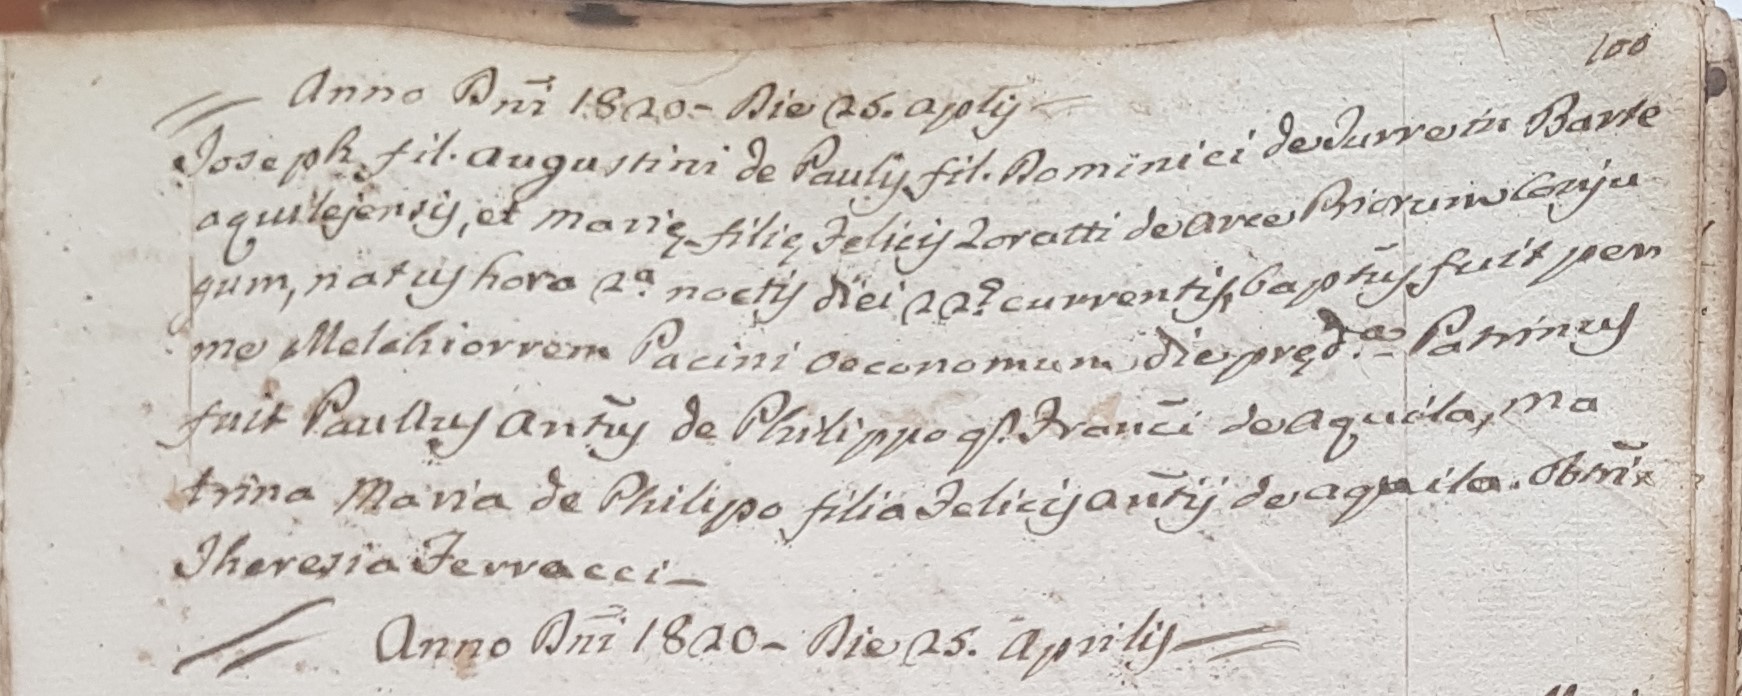 100
Anno Dnī 1820 - Die 25. aplis
Joseph fil. Augustini de Paulis fil. Dominici de Turre in Parte
aquilejensis, et Marię filię Felicis Zoratti de Arce Priorum Conju
gum, natus hora 2a. noctis diei 22æ currentis, baptūs fuit per
me Melchiorrem Pacini Oeconomum die pręd.a - Patrinus
fuit Paullus Antūs de Philippo qm. Franci de Aquila, Ma
trina Maria de Philipo filia Felicis Antij de Aquila. Obtrix
Theresia Ferracci -
Anno Dnī 1820 - Die 25. Aprilis